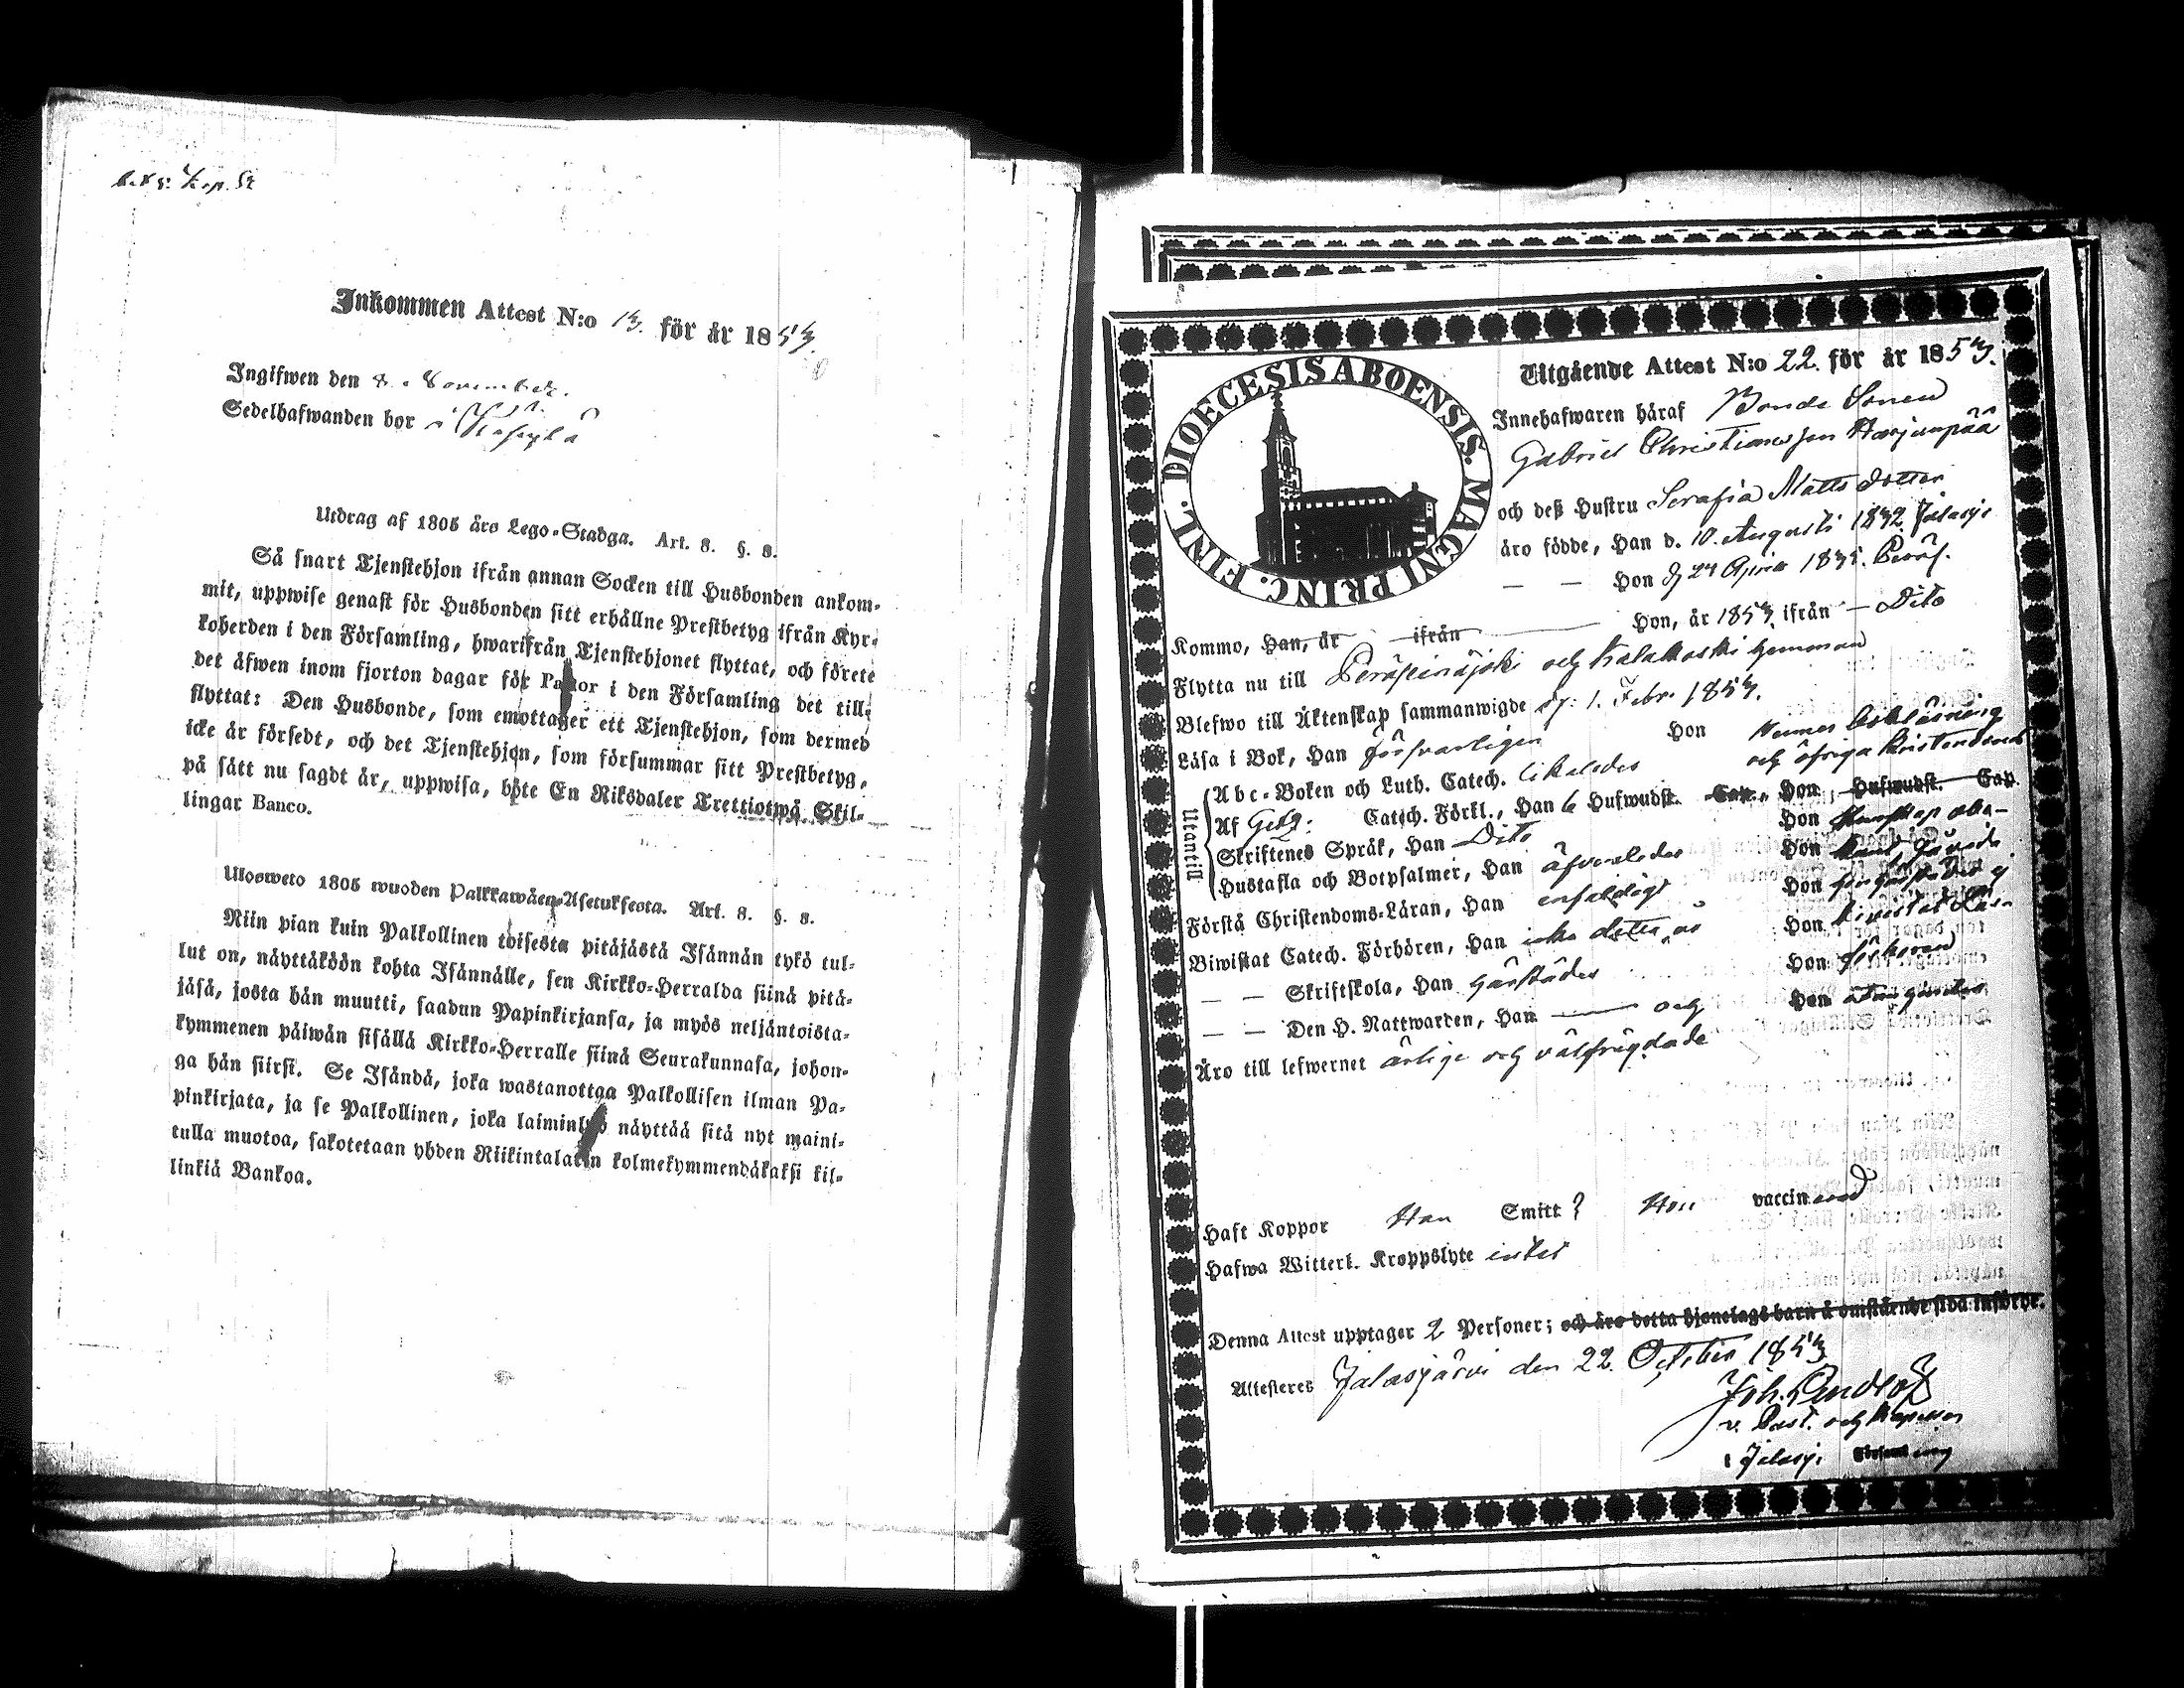 Inkommen Attest N:o 13. för år 1853.
Ingifwen den 8. November.
Sedelhafwanden bor i
Utdrag af 1805 års Lego-Stadga. Art. 8. §. 8.
Så snart Tjenstehjon ifrån annan Socken till Husbonden ankom-
mit, uppwise genast för Husbonden sitt erhållne Prestbetyg ifrån Kyr-
koherden i den Församling, hwarifrån Tjenstehjonet flyttat, och förete
det äfwen inom fjorton dagar för Pastor i den Församling det till-
flyttat: Den Husbonde, som emottager ett Tjenstehjon, som dermed
icke är försedt, och det Tjenstehjon, som försummar sitt Prestbetyg,
på sått nu sagdt är, uppwisa, böte En Riksdaler Trettiotwå Skil-
lingar Banco.
Ulosweto 1805 wuoden Palkkawäen-Asetuksesta. Art. 8. §. 8.
Niin pian kuin Palkollinen toisesta pitäjästä Isännän tykö tul-
lut on, näyttäköön kohta Isännälle, sen Kirkko-Herralda siinä pitä-
jäsä, josta hän muutti, saadun Papinkirjansa, ja myös neljäntoista-
kymmenen päiwän sisällä Kirkko-Herralle siinä Seurakunnasa, johon-
ga hän siirsi. Se Isändä, joka wastanottaa Palkollisen ilman Pa-
pinkirjata, ja se Palkollinen, joka laiminlyö näyttää sitä nyt maini-
tulla muotoa, sakotetaan yhden Riikintalarin kolmekymmendäkaksi kil-
linkiä Bankoa.
DIOECESIS ABOENSIS. MAGNI PRINC. FINL.
Utgående Attest N:o 22. för år 1853.
Innehafwaren håraf Bonde Sonen
Gabriel Christiansson Harjunpää
och deß Hustru Serafia Matts dotter
äro födde, Han d. 10. Augusti 1832 Jalasje
— — Hon d 24 April 1835. Peräs.
Kommo, Han, år ifrån — Hon, år 1853. ifrån — Dito
Flytta nu till Peräseinäjoki och Kalakoski hemman
Blefwo till Äktenskap sammanwigde d. 1. Febr. 1853.
Läsa i Bok, Han försvarligen Hon
och öfriga Kristendoms
Utantill
Abc-Boken och Luth. Catech. likaledes
Af Catech. Förkl., Han 6 Hufwudst. Cap., Hon Hufwudst. Cap.
Skriftenes Språk, Han Dito Hon
Hustafla och Botpsalmer, Han äfvenledes Hon
Förstå Christendoms-Läran, Han enfaldigt Hon
Biwistat Catech. Förhören, Han Hon
— — Skriftskola, Han Hon
— — Den H. Nattwarden, Han — och Hon
Äro till lefwernet ärliga och välfrägdade
Haft Koppor Han Smitt? Hon vaccinerad
Hafwa Witterl. Kroppslyte intet
Denna Attest upptager 2 Personer; och äro detta hjonelags barn å omstående sida införde.
Attesteres Jalasjärvi den 22. October 1853
v. Past. och Kapellan
i Jalasj.